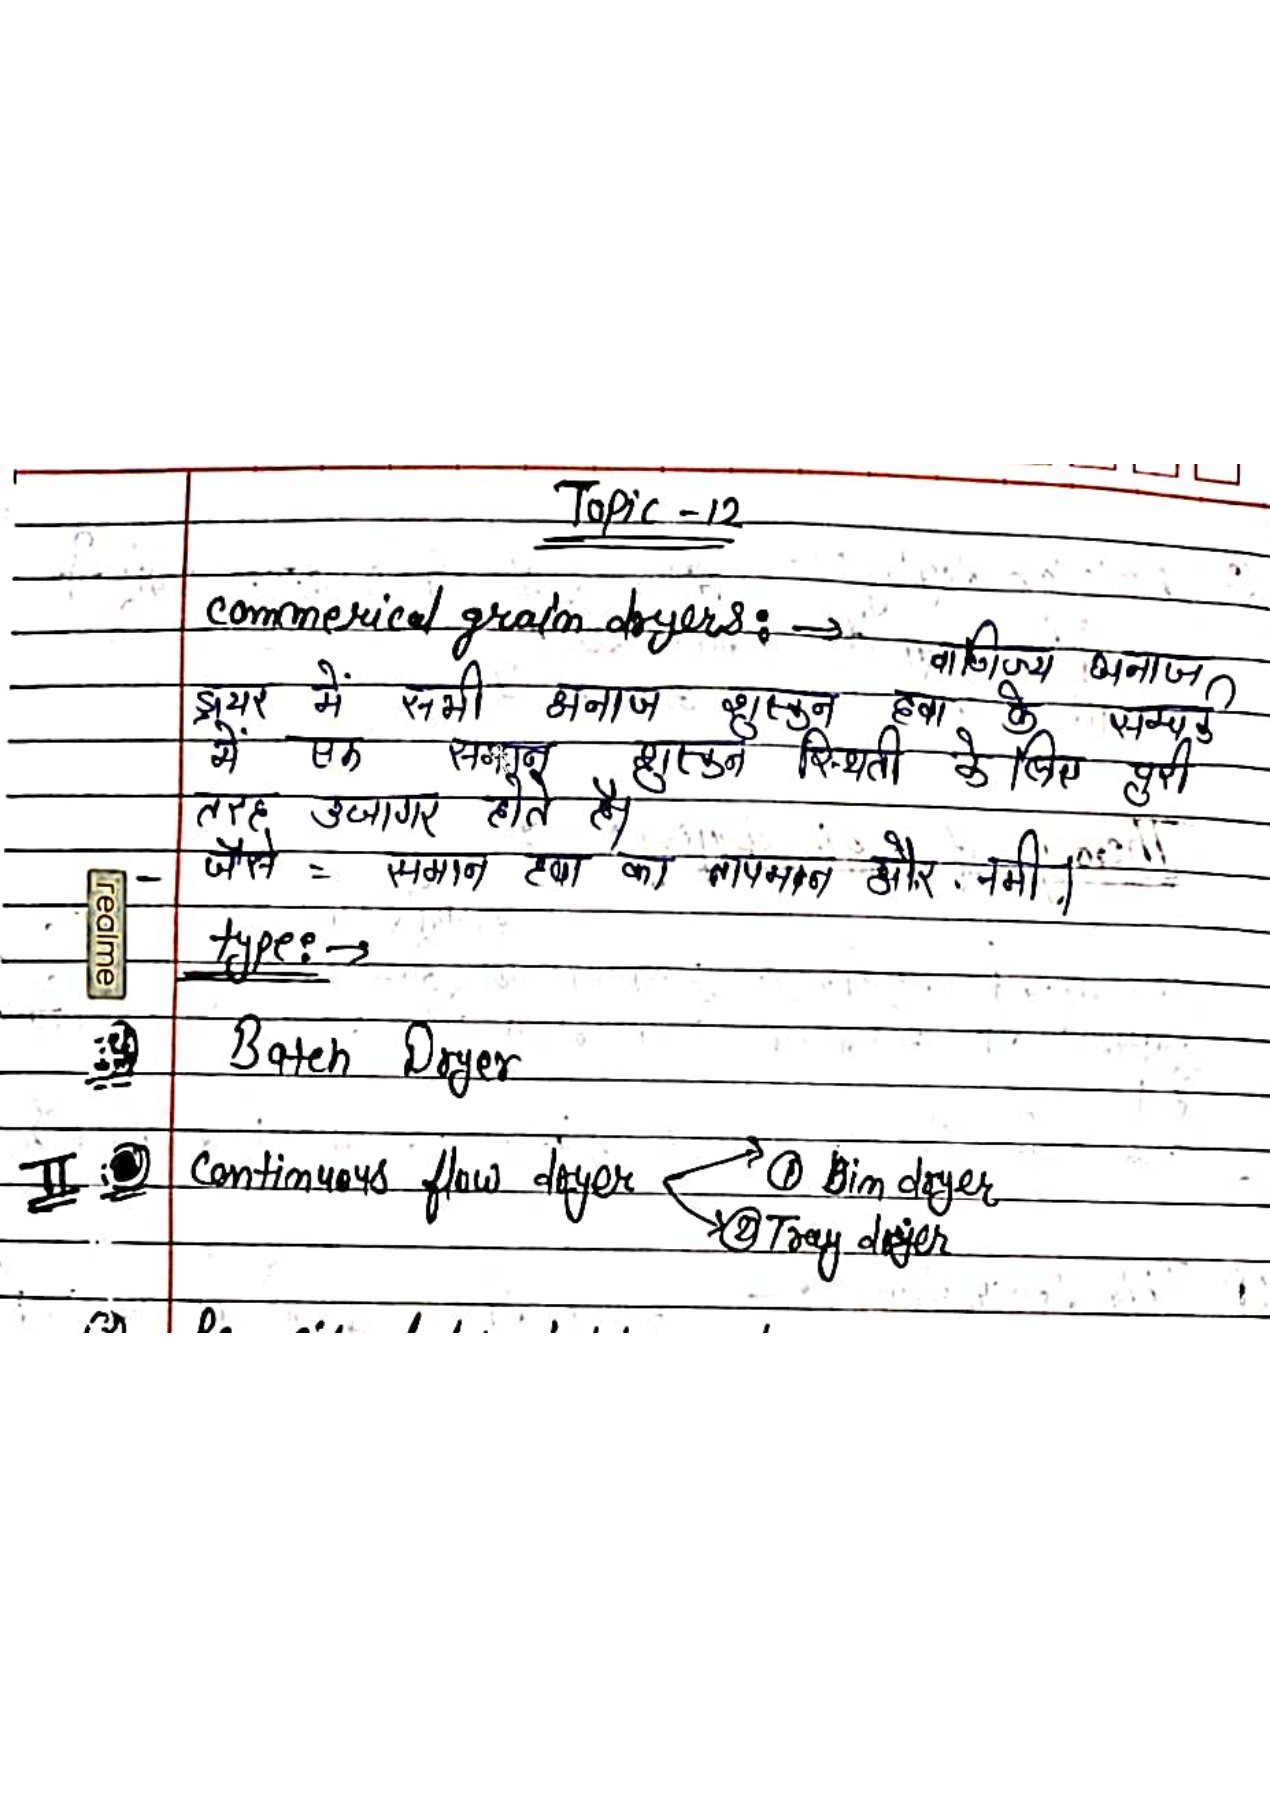 Topic - 12
commerical grain dryers :→
वाणिज्य अनाज
ड्रायर में सभी अनाज शुस्कन हवा के सम्पर्क
में एक समान शुस्कन स्थिती के लिए पुरी
तरह उजागर होते है।
- जैसे = समान हवा का तापमान और नमी।
type :→
realme
Batch Dryer
II Continuous flow dryer ① Bin dryer
② Tray dryer